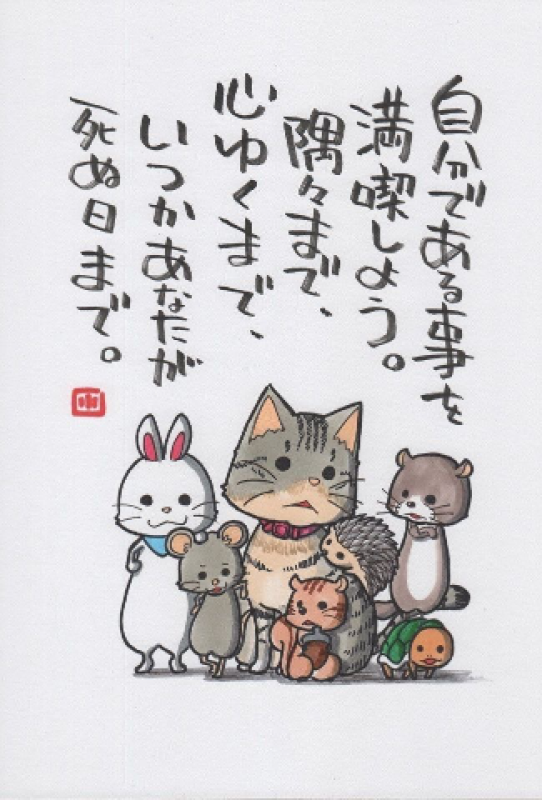 自分である事を
満喫しよう。
隅々まで、
心ゆくまで、
いつかあなたが
死ぬ日まで。